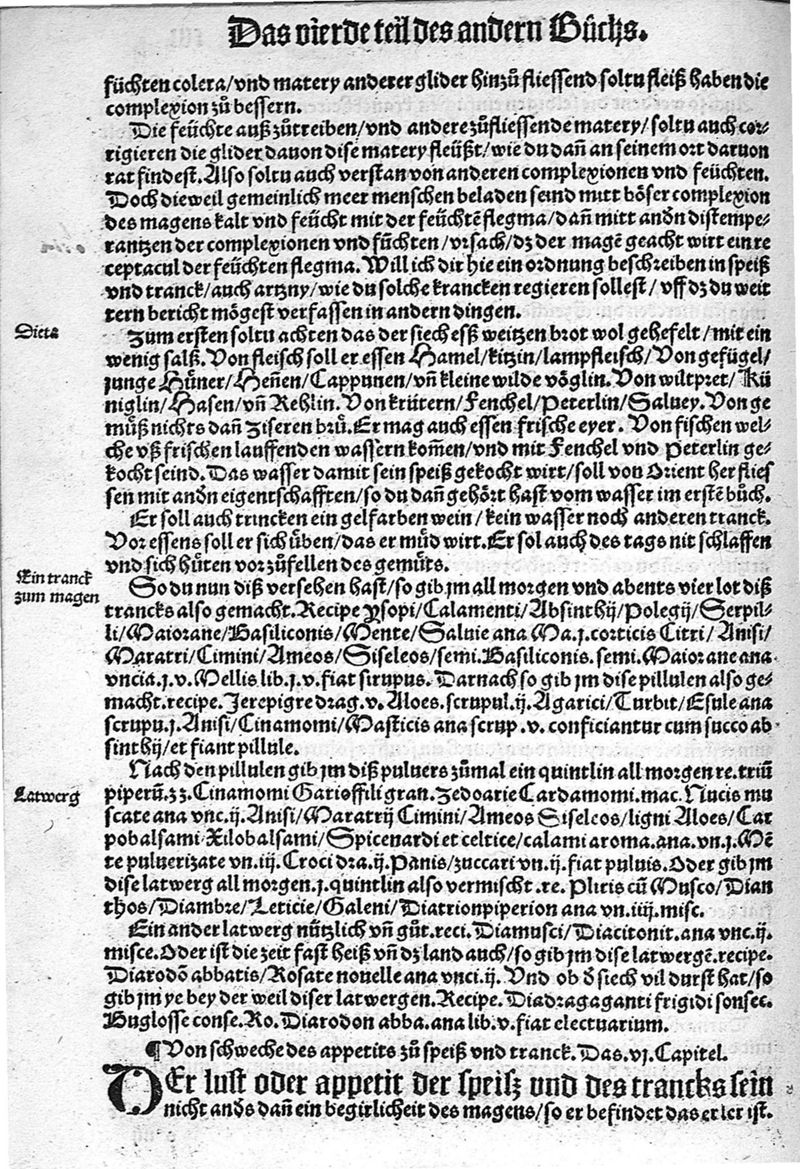 Das vierde teil des andern Bůchs.
füchten colera/vnd matery anderer glider hinzů fliessend soltu fleiß haben die
complexion zů bessern.
Die feüchte auß zůtreiben/vnd andere zůfliessende matery/soltu auch cor-
rigieren die glider dauon dise matery fleüßt/wie du dañ an seinem ort daruon
rat findest. Also soltu auch verstan von anderen complexionen vnd feüchten.
Doch dieweil gemeinlich meer menschen beladen seind mitt böser complexion
des magens kalt vnd feücht mit der feüchtē flegma/dañ mitt andn distempe-
rantzen der complexionen vnd füchten/vrsach/dz der magē geacht wirt ein re
ceptacul der feüchten flegma. Will ich dir hie ein ordnung beschreiben in speiß
vnd tranck/auch artzny/wie du solche krancken regieren sollest/vff dz du weit
tern bericht mögest verfassen in andern dingen.
Dieta
Zum ersten soltu achten das der siech esß weitzen brot wol gehefelt/mit ein
wenig saltz. Von fleisch soll er essen Hamel/kitzin/lampfleisch/Von gefügel/
junge Hüner/Heñen/Cappunen/vñ kleine wilde vöglin. Von wiltpret/Kü
niglin/Hasen/vñ Rehlin. Von krütern/Fenchel/Peterlin/Saluey. Von ge
müß nichts dañ Ziseren brü. Er mag auch essen frische eyer. Von fischen wel-
che vß frischen lauffenden wassern kom̃en/vnd mit Fenchel vnd Peterlin ge-
kocht seind. Das wasser damit sein speiß gekocht wirt/soll von Orient her flies
sen mit andn eigentschafften/so du dañ gehört hast vom wasser im erstē bůch.
Er soll auch trincken ein gelfarben wein/kein wasser noch anderen tranck.
Vor essens soll er sich üben/das er müd wirt. Er sol auch des tags nit schlaffen
vnd sich hüten vor zůfellen des gemüts.
Ein tranck
zum magen
So du nun diß versehen hast/so gib jm all morgen vnd abents vier lot diß
trancks also gemacht. Recipe ysopi/Calamenti/Absinthij/Polegij/Serpil-
li/Maiorane/Basiliconis/Mente/Saluie ana Ma.j. corticis Citri/Anisi/
Maratri/Cimini/Ameos/Siseleos/semi. Basiliconis. semi. Maiorane ana.
vncia.j.v. Mellis lib.j.v. fiat sirupus. Darnach so gib jm dise pillulen also ge-
macht. recipe. Jerepigre drag.v. Aloes. scrupul.ij. Agarici/Turbit/Esule ana
scrupu.j. Anisi/Cinamomi/Masticis ana scrup.v. conficiantur cum succo ab
sinthij/et fiant pillule.
Latwerg
Nach den pillulen gib jm diß puluers zůmal ein quintlin all morgen re. triũ
piperũ.zz. Cinamomi Garioffili gran. Zedoarie Cardamomi. mac. Nucis mu
scate ana vnc.ij. Anisi/Maratrij Cimini/Ameos Siseleos/ligni Aloes/Car
pobalsami Xilobalsami/Spicenardi et celtice/calami aroma. ana. vn.j. Mē
te puluerizate vn.iij. Croci dra.ij. Panis/zuccari vn.ij. fiat puluis. Oder gib jm
dise latwerg all morgen.j. quintlin also vermischt. re. Pliris cũ Musco/Dian
thos/Diambre/Leticie/Galeni/Diatrionpiperion ana vn.iiij. misc.
Ein ander latwerg nützlich vñ gůt. reci. Diamusci/Diacitonit. ana vnc.ij.
misce. Oder ist die zeit fast heiß vñ dz land auch/so gib jm dise latwergē. recipe.
Diarodō abbatis/Rosate nouelle ana vnci.ij. Vnd ob d siech vil durst hat/so
gib jm ye bey der weil diser latwergen. Recipe. Diadragaganti frigidi consec.
Buglosse conse. Ro. Diarodon abba. ana lib.v. fiat electuarium.
¶ Von schweche des appetits zů speiß vnd tranck. Das.vj. Capitel.
DEr lust oder appetit der speisz und des trancks sein
nicht ands dañ ein begirlicheit des magens/so er befindet das er ler ist.